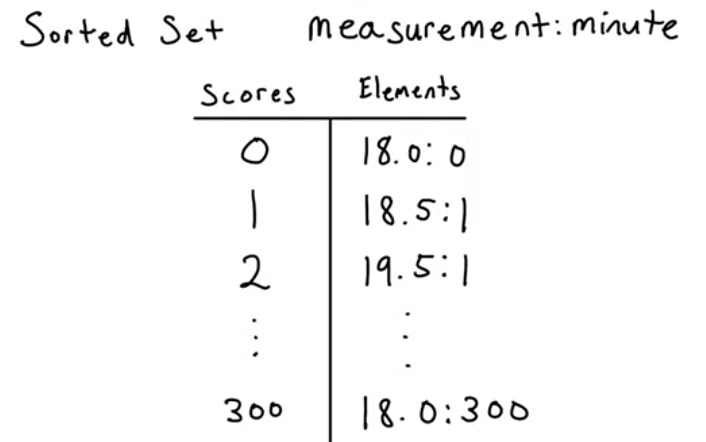 Sorted Set measurement: minute
Scores Elements
0 18.0: 0
1 18.5:1
2 19.5:1
⋮ ⋮
300 18.0:300